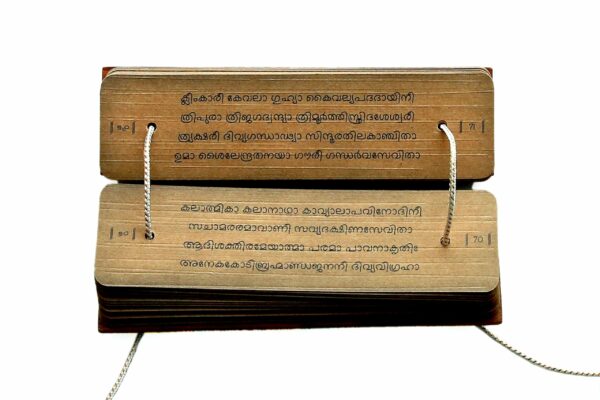 ക്ലീംകാരീ കേവലാ ഗുഹ്യാ കൈവല്യപദദായിനീ
ത്രിപുരാ ത്രിജഗദ്വന്ദ്യാ ത്രിമൂർത്തിസ്ത്രിദശേശ്വരീ
ത്ര്യക്ഷരീ ദിവ്യഗന്ധാഢ്യാ സിന്ദൂരതിലകാഞ്ചിതാ
ഉമാ ശൈലേന്ദ്രതനയാ ഗൗരീ ഗന്ധർവസേവിതാ
൭൧ 71
കലാത്മികാ കലാനാഥാ കാവ്യാലാപവിനോദിനീ
സചാമരരമാവാണീ സവ്യദക്ഷിണസേവിതാ
ആദിശക്തിരമേയാത്മാ പരമാ പാവനാകൃതിഃ
അനേകകോടിബ്രഹ്മാണ്ഡജനനീ ദിവ്യവിഗ്രഹാ
൭൦ 70